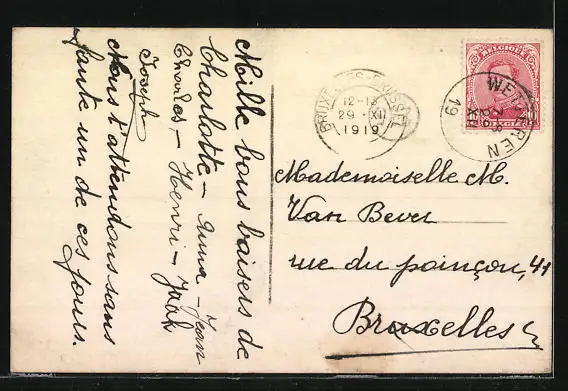 Mille bons baisers de
Charlotte - Anna - Jean
Charles - Henri - Jack
Joseph
Nous t'attendons sans
faute un de ces jours.
BRUXELLES-BRUSSEL
12-13
29·XII
1919
BELGIQUE
BELGIË
WETTEREN
28
XII
19
Mademoiselle M.
Van Bever
rue du poinçon, 41
Bruxelles